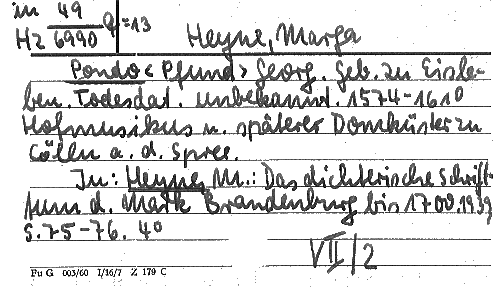 in 49
Hz 6990 Q=13
Heyne, Marga
Pondo <Pfund> Georg. geb. zu Eisle-
ben. Todesdat. unbekannt. 1574-1610
Hofmusikus u. späterer Domküster zu
Cölln a. d. Spree.
In: Heyne, M.: Das dichterische Schrift-
tum d. Mark Brandenburg bis 1700. 1939
S. 75-76. 4°
VII/2
Fu G 003/60 I/16/7 Z 179 C